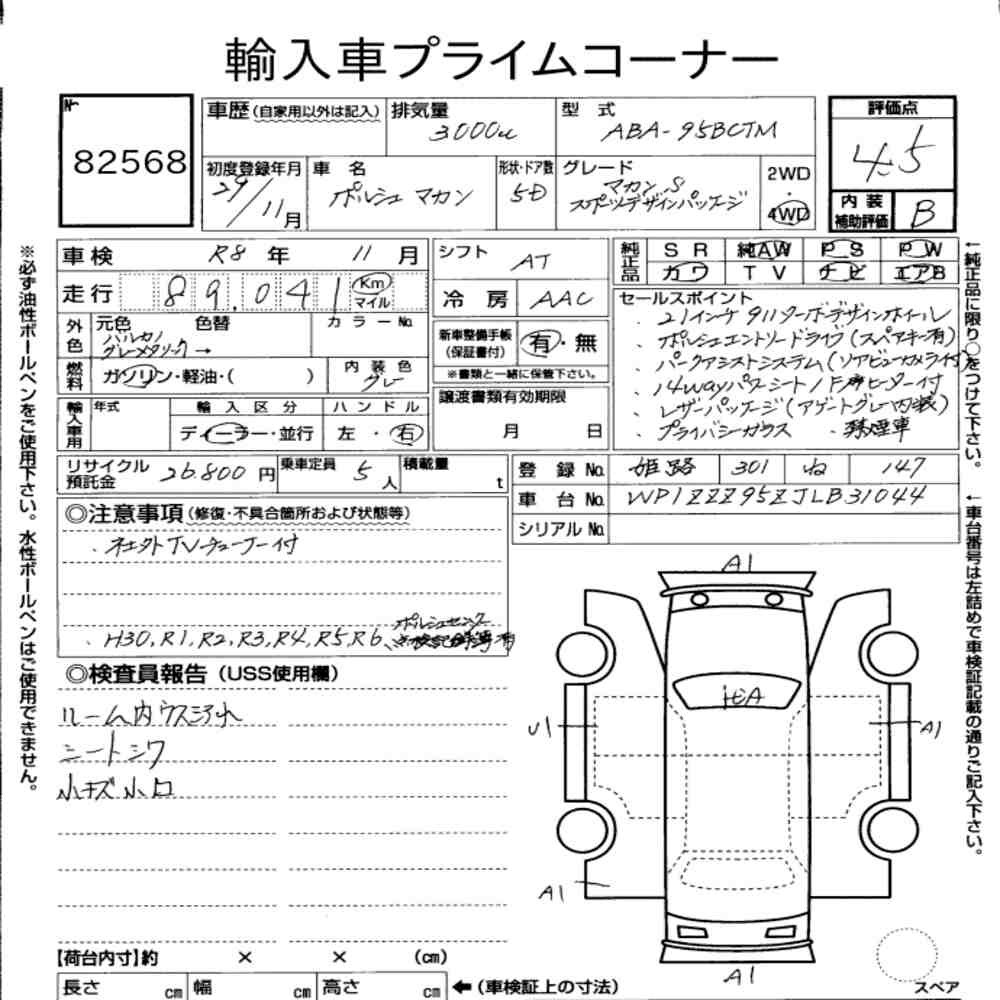 輸入車プライムコーナー
№
82568
車歴 (自家用以外は記入)
排気量
3000cc
型式
ABA-95BCTM
評価点
4.5
初度登録年月
29/11月
車名
ポルシェ マカン
形状・ドア数
5D
グレード
マカンS
スポーツデザインパッケージ
2WD
・
4WD
内装
補助評価
B
車検 R8年 11月
シフト AT
純正品
SR 純AW PS PW
カワ TV ナビ エアB
走行 89.041 Km マイル
冷房 AAC
セールスポイント
・21インチ911ターボデザインホイール
・ポルシェエントリー&ドライブ(スペアキー有)
・パークアシストシステム(リアビューカメラ付)
・14wayパワーシート/F席ヒーター付
・レザーパッケージ(アゲートグレー内装)
・プライバシーガラス ・禁煙車
外色
元色 色替
ボルカノ
グレーメタリック→
カラーNo.
新車整備手帳
(保証書付)
有・無
※書類と一緒に保管下さい。
燃料
ガソリン・軽油・( )
内装色
グレー
譲渡書類有効期限
月 日
輸入車用
年式
輸入区分
ディーラー・並行
ハンドル
左・右
リサイクル
預託金
26.800円
乗車定員
5人
積載量
t
登録No. 姫路 301 ね 147
車台No. WP1ZZZ95ZJLB31044
シリアルNo.
◎注意事項 (修復・不具合箇所および状態等)
・社外TVチューナー付
・H30,R1,R2,R3,R4,R5,R6, ポルシェセンター
点検記録簿有
◎検査員報告 (USS使用欄)
ルーム内ウスヨゴレ
シートシワ
小キズ小凹
A1
U1
A1
A1
A1
【荷台内寸】約 × × (cm)
長さ cm 幅 cm 高さ cm ←(車検証上の寸法)
スペア
※必ず油性ボールペンをご使用下さい。水性ボールペンはご使用できません。
←純正品に限り○をつけて下さい。
←車台番号は左詰めで車検証記載の通りご記入下さい。